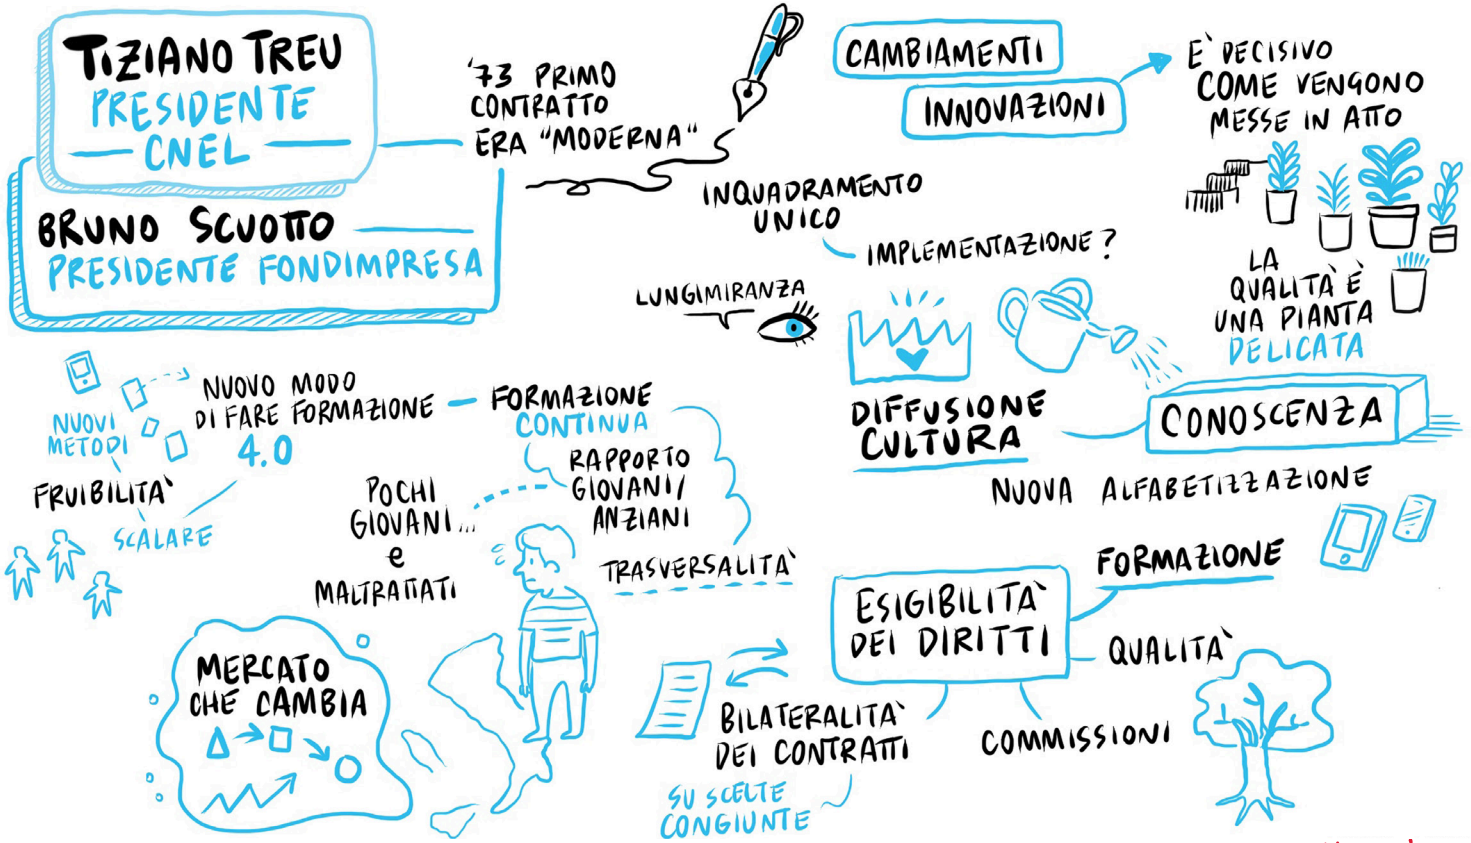 TIZIANO TREU
PRESIDENTE
CNEL
BRUNO SCUOTTO
PRESIDENTE FONDIMPRESA
'73 PRIMO
CONTRATTO
ERA "MODERNA"
CAMBIAMENTI
INNOVAZIONI
E' DECISIVO
COME VENGONO
MESSE IN ATTO
INQUADRAMENTO
UNICO
IMPLEMENTAZIONE?
LUNGIMIRANZA
LA
QUALITA' È
UNA PIANTA
DELICATA
DIFFUSIONE
CULTURA
CONOSCENZA
NUOVA ALFABETIZZAZIONE
NUOVI
METODI
NUOVO MODO
DI FARE FORMAZIONE
4.0
FRUIBILITA'
SCALARE
FORMAZIONE
CONTINUA
RAPPORTO
GIOVANI/
ANZIANI
POCHI
GIOVANI...
e
MALTRATTATI
TRASVERSALITA'
MERCATO
CHE CAMBIA
ESIGIBILITA'
DEI DIRITTI
FORMAZIONE
QUALITA'
COMMISSIONI
BILATERALITA'
DEI CONTRATTI
SU SCELTE
CONGIUNTE